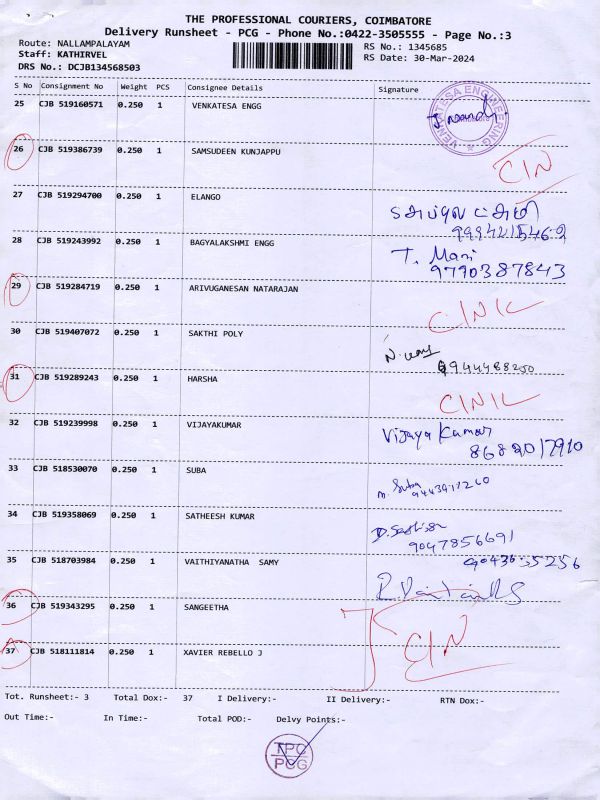 THE PROFESSIONAL COURIERS, COIMBATORE
Delivery Runsheet - PCG - Phone No.:0422-3505555 - Page No.:3
Route: NALLAMPALAYAM RS No.: 1345685
Staff: KATHIRVEL RS Date: 30-Mar-2024
DRS No.: DCJB134568503
S No Consignment No Weight PCS Consignee Details Signature
25 CJB 519160571 0.250 1 VENKATESA ENGG
VENKATESA ENGINEERING
26 CJB 519386739 0.250 1 SAMSUDEEN KUNJAPPU
27 CJB 519294700 0.250 1 ELANGO
28 CJB 519243992 0.250 1 BAGYALAKSHMI ENGG T. Mani
9790387843
29 CJB 519284719 0.250 1 ARIVUGANESAN NATARAJAN
CINIL
30 CJB 519407072 0.250 1 SAKTHI POLY
9944488250
31 CJB 519289243 0.250 1 HARSHA
CINIL
32 CJB 519239998 0.250 1 VIJAYAKUMAR Vijaya Kumar
8682017910
33 CJB 518530070 0.250 1 SUBA m. Suba
34 CJB 519358069 0.250 1 SATHEESH KUMAR
9047856691
35 CJB 518703984 0.250 1 VAITHIYANATHA SAMY
36 CJB 519343295 0.250 1 SANGEETHA
CIN
37 CJB 518111814 0.250 1 XAVIER REBELLO J
Tot. Runsheet:- 3 Total Dox:- 37 I Delivery:- II Delivery:- RTN Dox:-
Out Time:- In Time:- Total POD:- Delvy Points:-
TPC
PCG